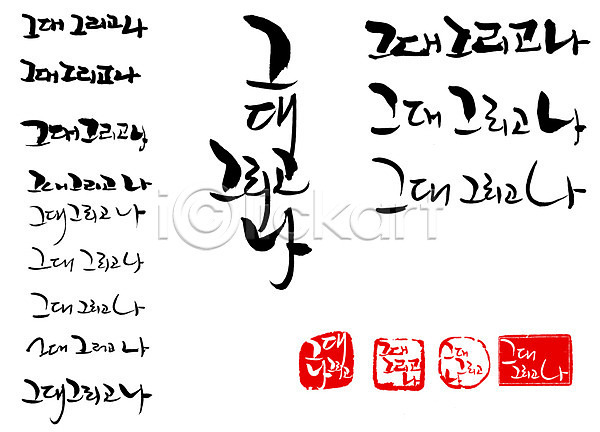 그대 그리고 나
그대 그리고 나
그대 그리고 나
그대 그리고 나
그대 그리고 나
그대 그리고 나
그대 그리고 나
그대 그리고 나
그대 그리고 나
그
대
그리고
나
그대 그리고 나
그대 그리고 나
그대 그리고 나
그대
나그리고
그대
그리고
나
그대
그리고
나
그대
그리고 나
iclickart